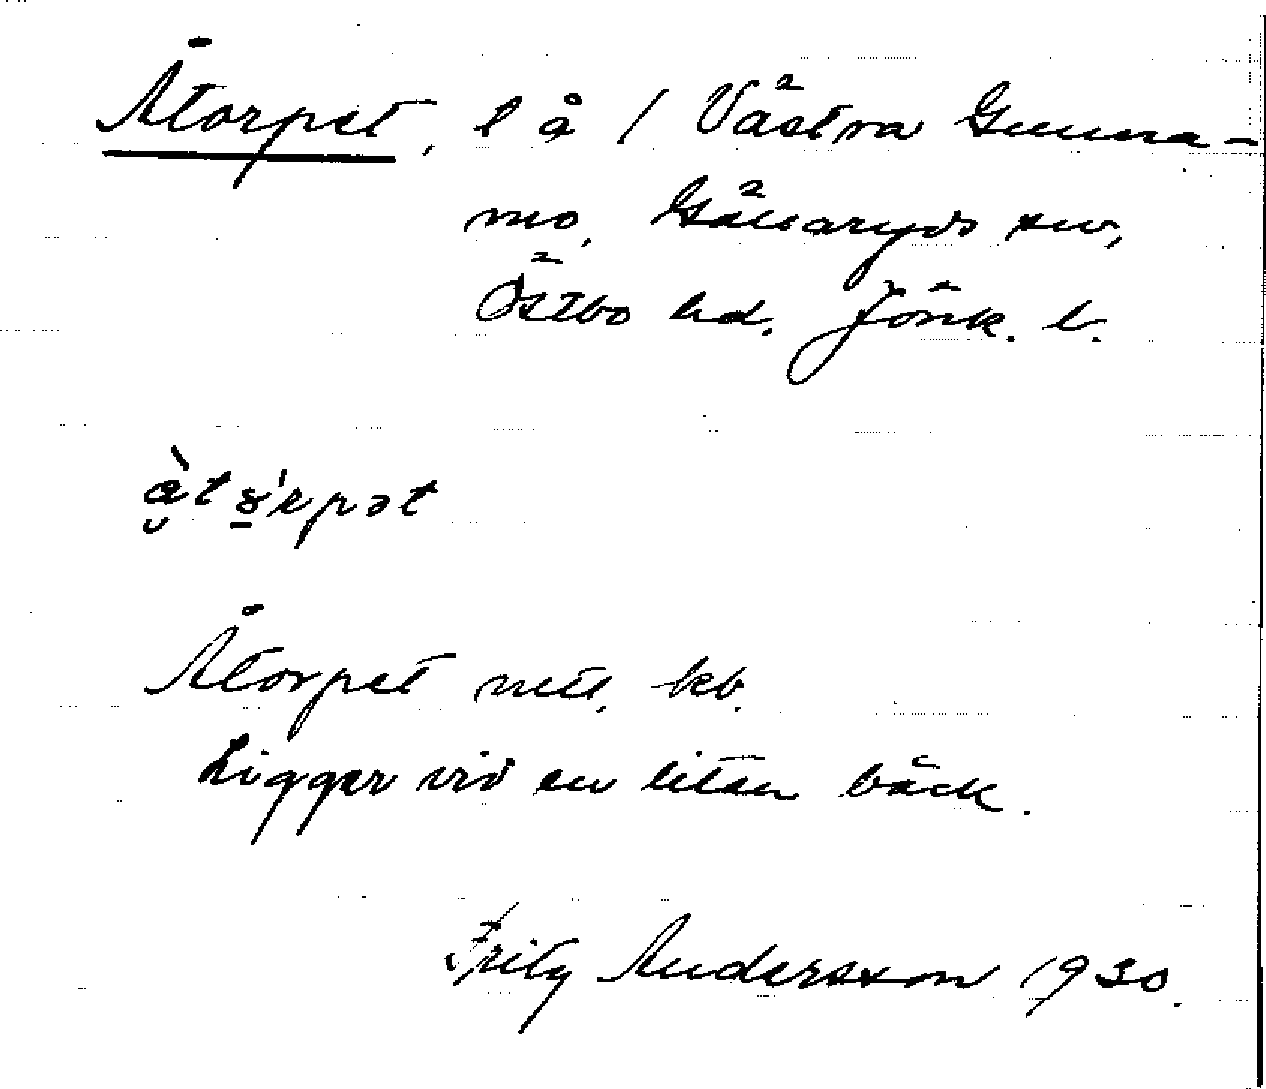 Åtorpet, l å / Västra Gunna-
mo, Gällaryds sn,
Östbo hd. Jönk. l.
Åtorpet ntl. kb.
Ligger vid en liten bäck.
Fritz Andersson 1930.